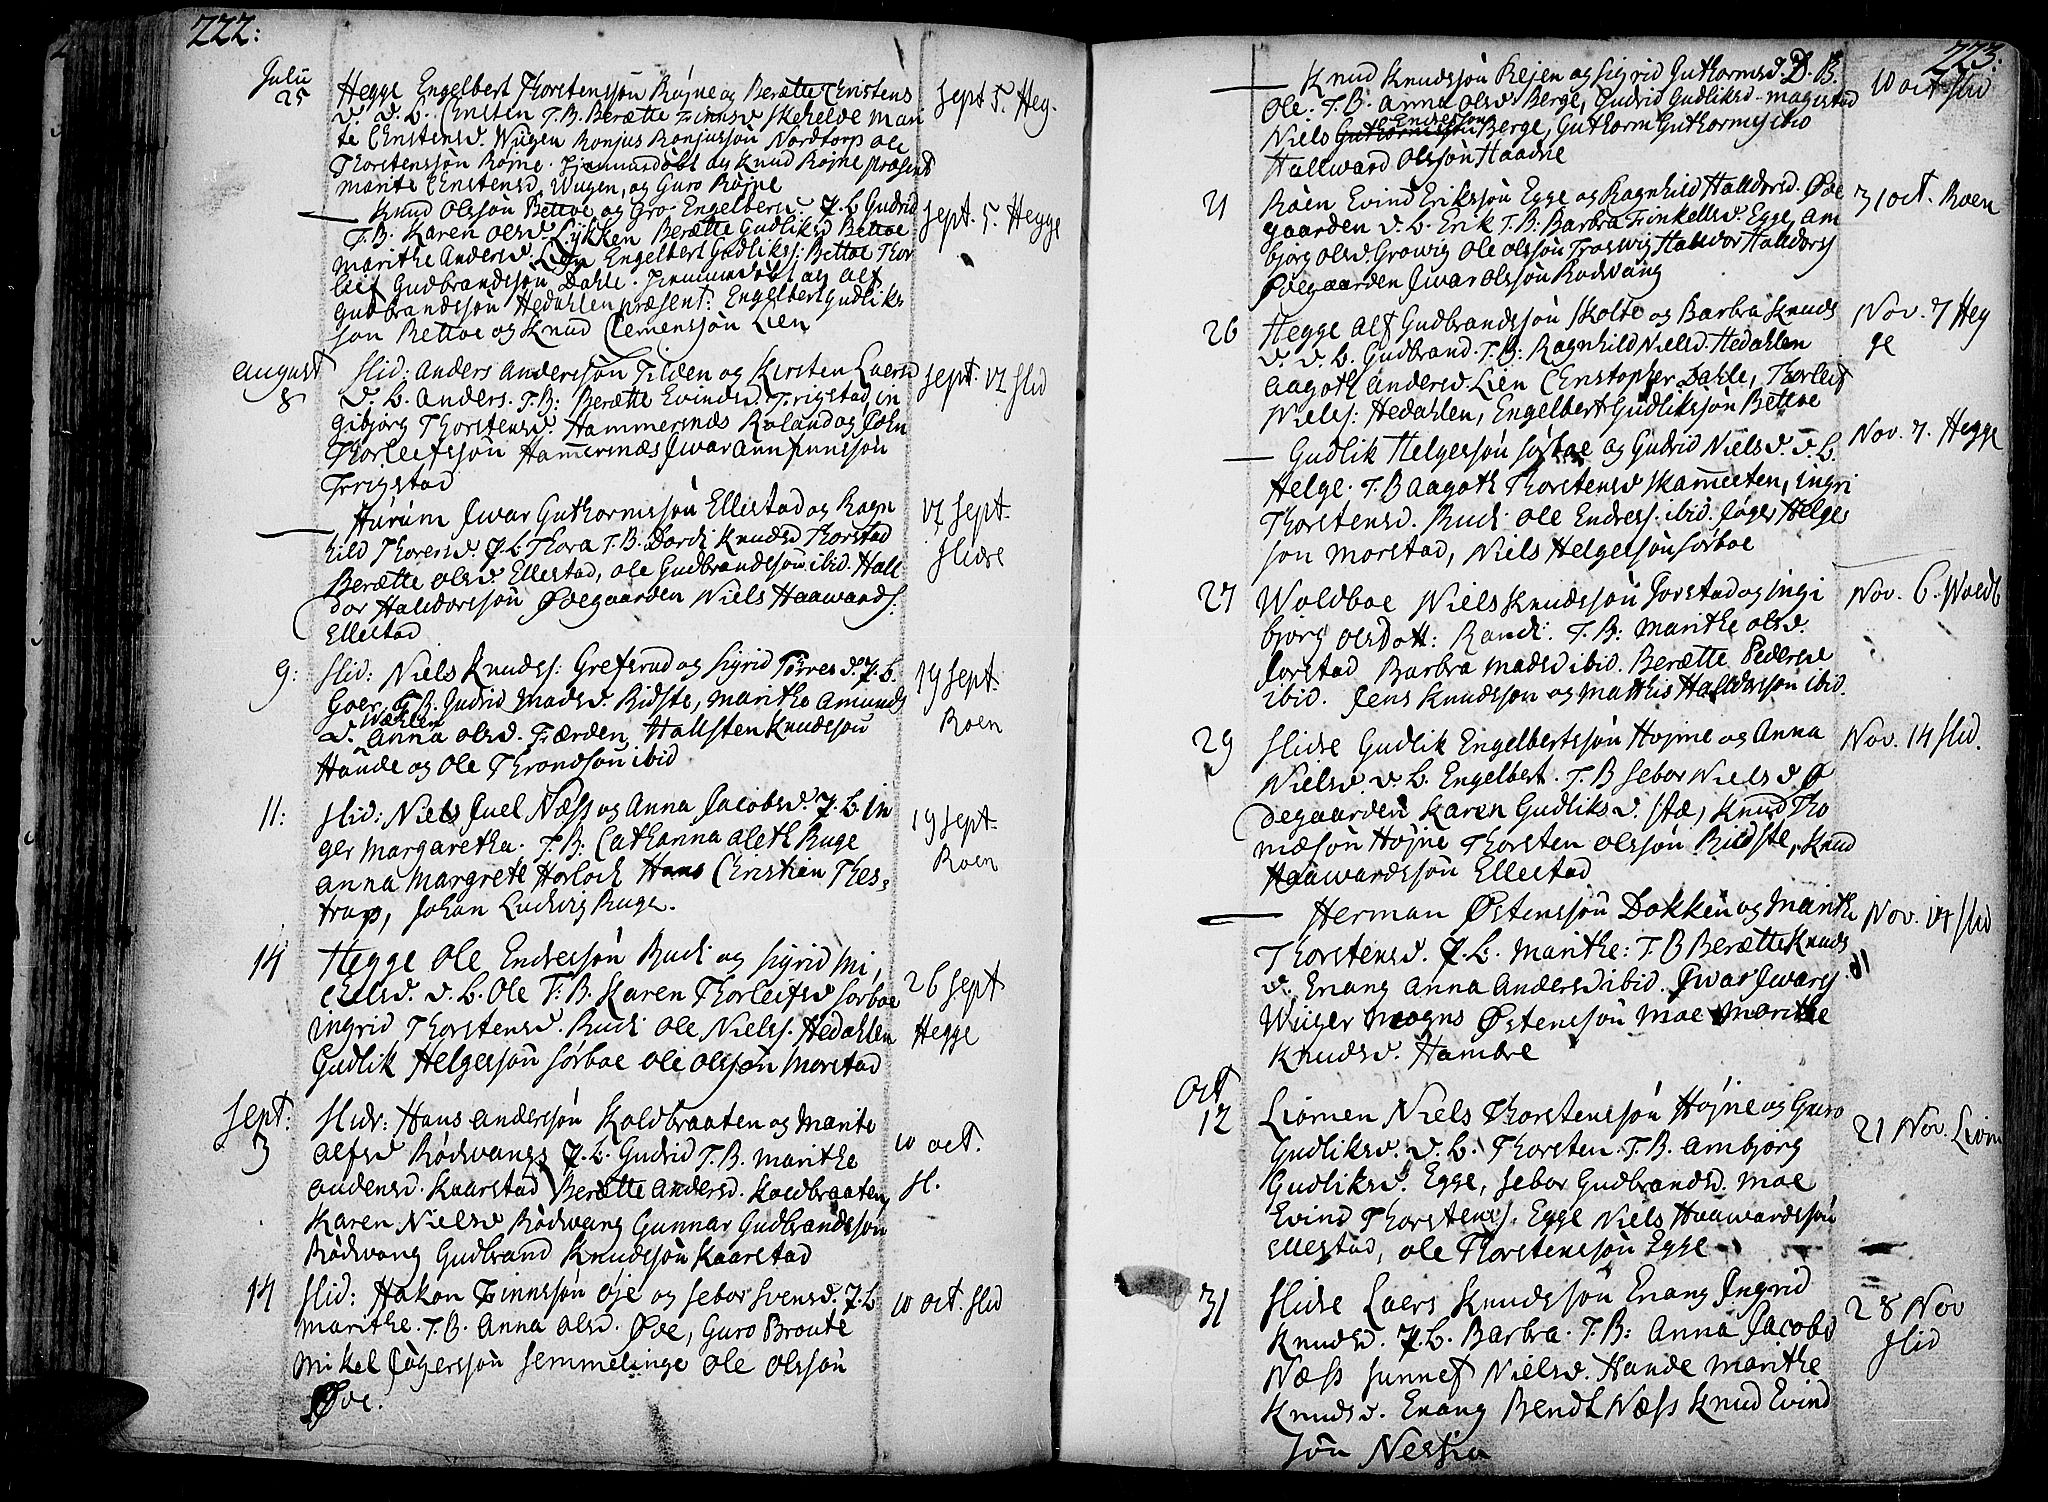 222:
Julii
25
Hegge Engelbert Thorstenssøn Røgne og Berætte Christens
d. d. B. Christen T.B. Berætte Finnsd Skehelde Mari
te Christensd. Wiigen Ronjus Ronjussøn Nordtorp Ole
Thorstenssøn Røjne. og Knud Røjne præsent
Marite Christensd. Wigen, og Guro Røjne
Sept 5. Heg.
— Knud Olssøn Bettoe og Gro Engelbersd. J. B. Gudrid
T.B. Karen Olsd. Lykken Berætte Gudliksd Bettoe
Marithe Andersd. Lien Engelbert Gudlikss: Bettoe Thor
leif Gudbrandssøn Dahle. af Alf
Gudbrandssøn Hedahlen præsent: Engelbert Gudliks
søn Bettoe og Knud Clemenssøn Lien
Sept. 5. Hegge
August
8
Slid: Anders Anderssøn Tilden og Kirsten Laersd
d. B. Anders. T.B: Berætte Evindsd. Trigstad, in
gibjørg Thorstensd. Hammersnæs Roland og John
Thorleifssøn Hamersnæs Jwar Annfinnssøn
Trigstad
Sept. 12 Slid
— Hurum Jwar Guthormssøn Ellestad og Ragn
hild Thorersd. J. B. Thora T.B. Dordi Knudsd Thorstad
Berætte Olsd. Ellestad, Ole Gudbrandssøn ibid. Hall
dor Halldorssøn Ødegaarden Niels Haawards:
Ellestad
12 Sept.
Slidre
9:
Slid: Niels Knudss: Grefsrud og Sigrid Torresd. J. B.
Goer. T.B. Gudrid Madsd. Ridste, Marithe Amunds
d. Wahlen Anna Olsd. Færden, Hallsten Knudssøn
Hande og Ole Throndssøn ibid
19 Sept.
Roen
11:
Slid: Niels Juel Næss og Anna Jacobsd. J. B. In
ger Margaretha. T.B: Catharina Aleth Ruge
Anna Margrete Horloch Hans Christien Thes-
trup, Johan Ludvig Ruge.
19 Sept.
Roen
14
Hegge Ole Endressøn Rudi og Sigrid Mi,
chelsd. d. B. Ole T.B. Karen Thorleifsd Sørboe
Ingrid Thorstensd. Rudi Ole Nielss. Hedahlen
Gudlik Helgessøn Sørboe Ole Olssøn Morstad
26 Sept
Hegge
Sept:
3
Slidr: Hans Anderssøn Koldbraaten og Marite
Alfsd Rødvangs J. B. Gudrid T.B. Marithe
Audensd. Kaarstad Berætte Andersd. Koldbraaten
Karen Nielsd Rødvang Gunnar Gudbrandssøn
Rødvang Gudbrand Knudssøn Kaarstad
10 oct.
Sl.
14
Slid: Hakon Finnssøn Øje og Sebor Svensd. J. B
Marithe. T.B. Anna Olsd. Øde, Guro Broute
Mikel Jøgerssøn Semmelinge Ole Olssøn
Øde.
10 Oct. Slid
223:
— Knud Knudssøn Rejen og Sigrid Guthormsd. D. B.
Ole: T.B. Anna Olsd. Berge, Gudrid Gudliksd. Magistad
Niels Endressøn Berge, Guthorm Guthormss ibid
Hallward Olssøn Haadne
10 oct Slid
21
Roen Evind Erikssøn Egge og Ragnhild Halldorsd. Øde
gaarden d. B. Erik T.B: Barbra Trinkellsd. Egge, Am
bjørg Olsd. Growig Ole Olssøn Troswig Halldor Halldorss
Ødegaarden Jwar Olssøn Rodvang
31 oct. Roen
26
Hegge Alf Gudbrandssøn Skolte og Barbra Knuds
d. d. B. Gudbrand. T.B: Ragnhild Nielsd. Hedahlen
Aagoth Andersd. Lien Christopher Dahle, Thorleif
Nielss: Hedahlen, Engelbert Gudlikssøn Bettoe
Nov. 7 Heg
ge
— Gudlik Helgessøn Sørboe og Gudrid Nielsd. d. B.
Helge. T.B Aagoth Thorstensd Skammesten, Ingri
Thorstensd. Rudi Ole Endress. ibid. Jøger Helges
søn Morstad, Niels Helgessøn Sørboe
Nov. 7. Hegge
27
Woldboe Niels Knudssøn Jorstad og Ingi
bjørg Olsdott: Randi. T.B: Marithe Olsd.
Jorstad Barbra Madsd ibid. Berætte Pedersd
ibid. Jens Knudssøn og Matthis Halldorssøn ibid.
Nov. 6. Woldb
29
Slidre Gudlik Engelbertssøn Højne og Anna
Nielsd. d. B. Engelbert. T.B Sebor Nielsd Ø
degaarden Karen Gudliksd. Stæ, Knud Tho
mæsøn Højne Thorsten Olssøn Ridste, Knud
Haawardssøn Ellestad
Nov. 14 Slid.
— Herman Østenssøn Dokken og Marithe
Thorstensd. J. B. Marithe: T.B Berætte Knuds
d. Enang Anna Andersd ibid. Jwar Jwarss
Wiiger Mogns Østenssøn Moe Marithe
Knudsd. Hambre
Nov. 14 Slid
Oct
12
Liomen Niels Thorstenssøn Højne og Guro
Gudliksd. d. B. Thorsten. T.B. Ambjørg
Gudliksd. Egge, Sebor Gudbrandsd. Moe
Evind Thorstenss. Egge Niels Haawardssøn
Ellestad, Ole Thorstenssøn Egge
21 Nov. Liom
31
Slidre Laers Knudssøn Enang Ingrid
Knudsd. J. B. Barbra. T.B: Anna Jacobsd
Næss Sunnef Nielsd. Hande Marithe
Knudsd. Enang Bendt Næss Knud Evind
søn Nessja
28 Nov
Slid